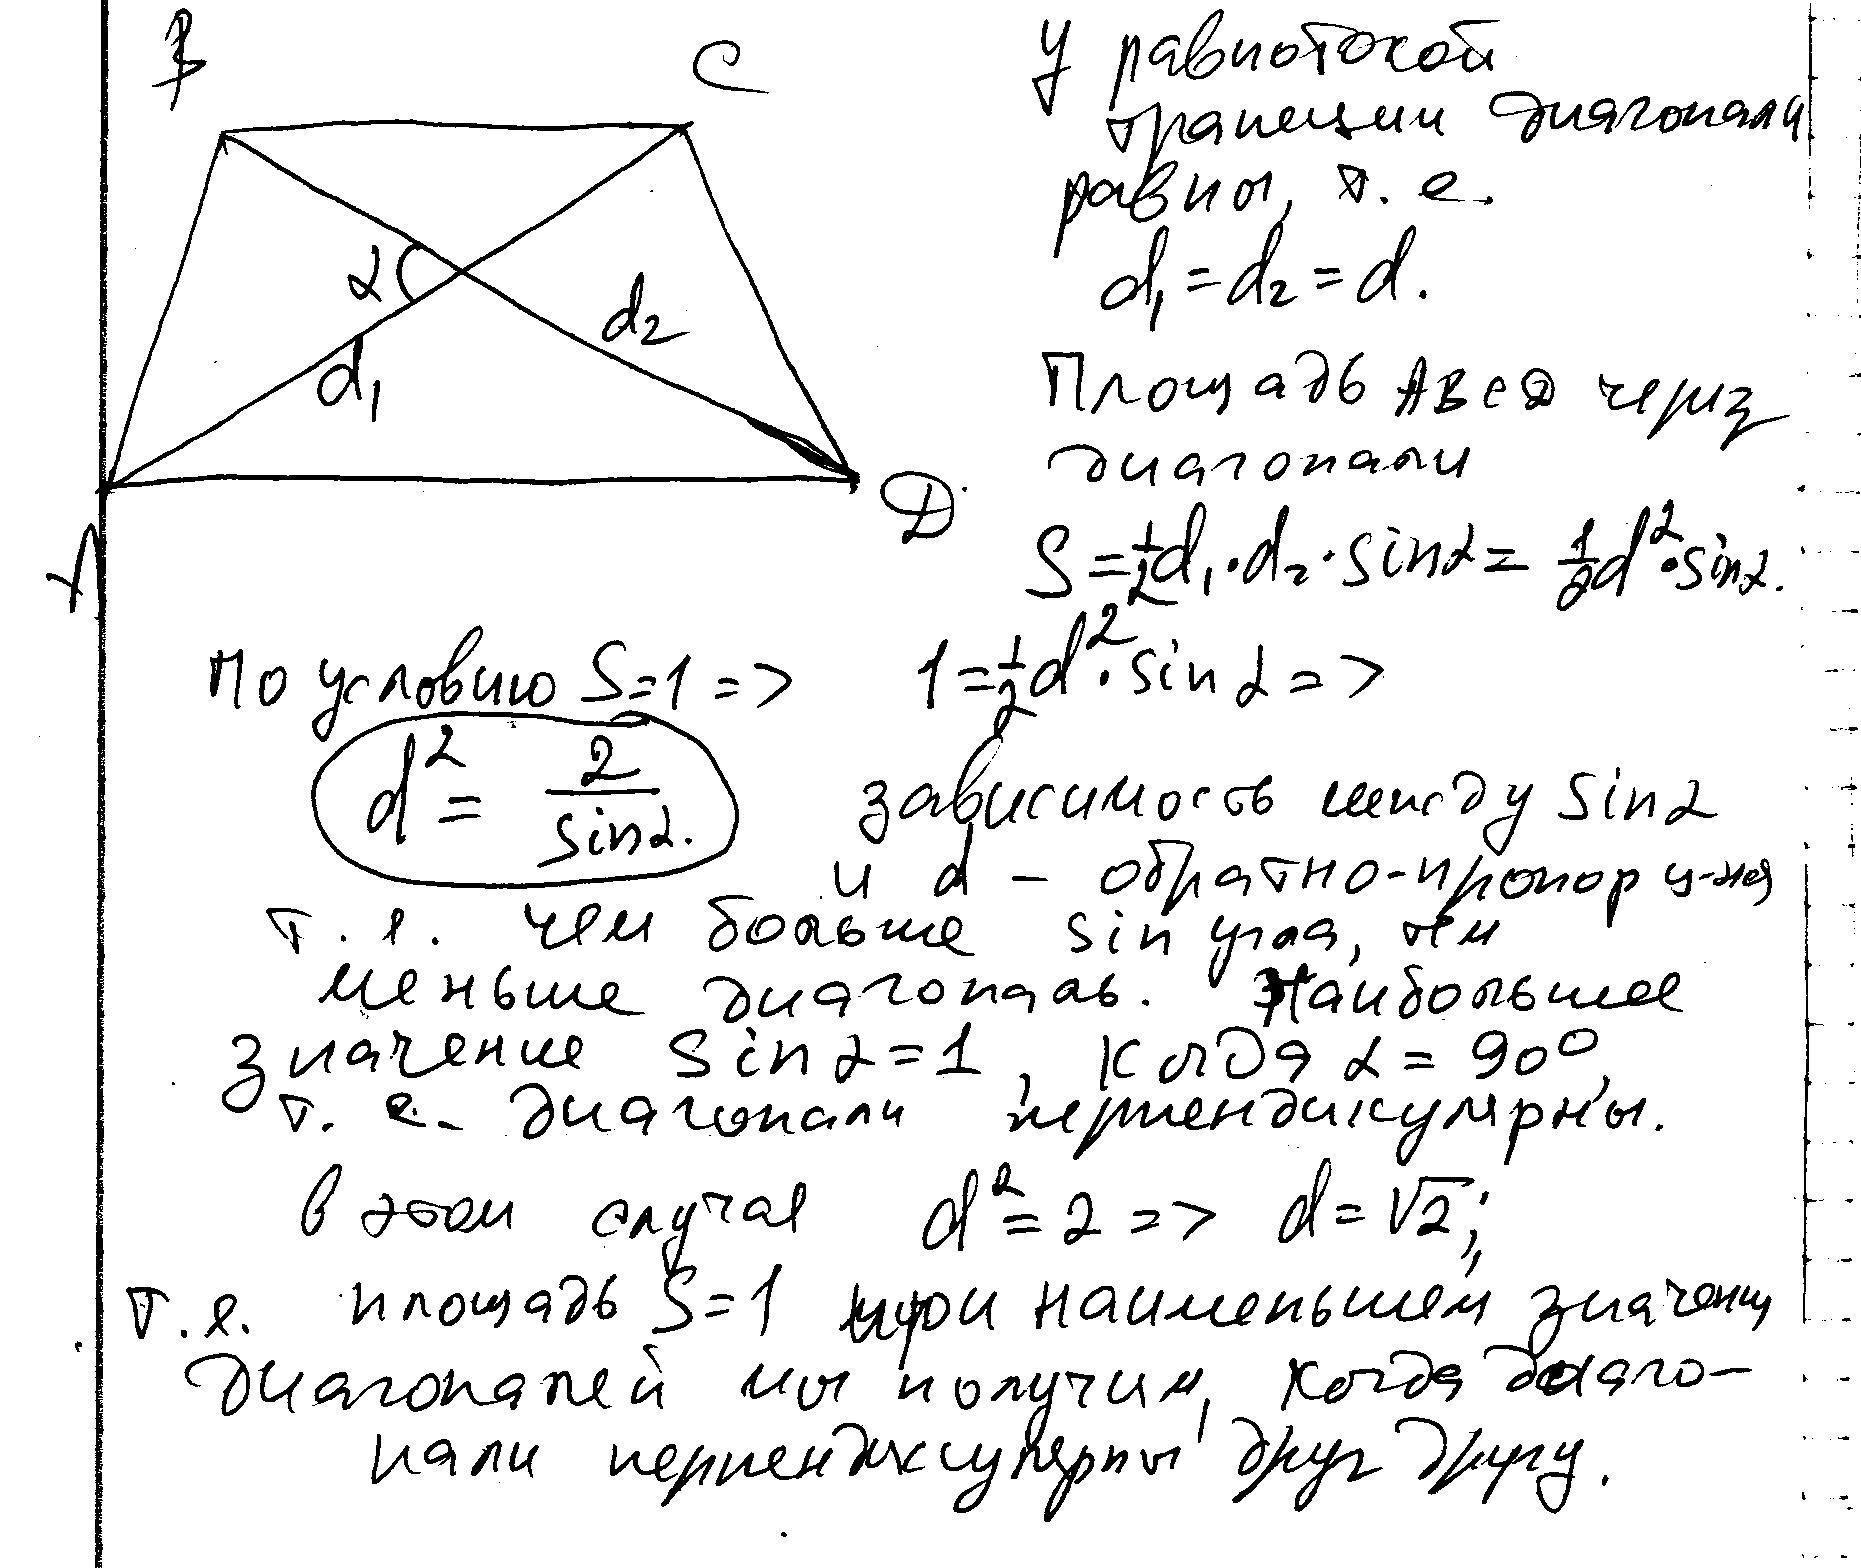 B
C
У равнобокой
трапеции диагонали
равны, т. е.
d₁ = d₂ = d.
α
d₂
d₁
Площадь ABCD через
диагонали
D
A
S = ½d₁·d₂·sinα = ½d²·sinα.
По условию S=1 => 1=½d²·sinα =>
d² = 2/sinα.
зависимость между sinα
и d – обратно-пропорц-ная
т. е. чем больше sin угла, тем
меньше диагональ. Наибольшее
значение sinα=1, когда α = 90°,
т. е. диагонали перпендикулярны.
В этом случае d² = 2 => d = √2;
т.е. площадь S=1 при наименьшем значении
диагоналей мы получим, когда диаго-
нали перпендикулярны друг другу.